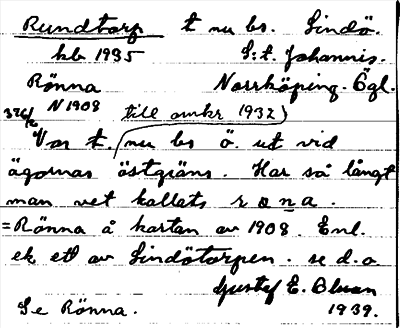 Rundtorp t nu bs. Lindö.
kb 1935 S:t Johannis.
Rönna Norrköping. Ögl.
N 1908 till omkr 1932)
326/2 Var t. nu bs ö. ut vid
ägornas östgräns. Har så långt
man vet kallats rona.
=Rönna å kartan av 1908. Enl.
ek ett av Lindötorpen. se d.o
Gustef E. Bluan
Se Rönna. 1939.